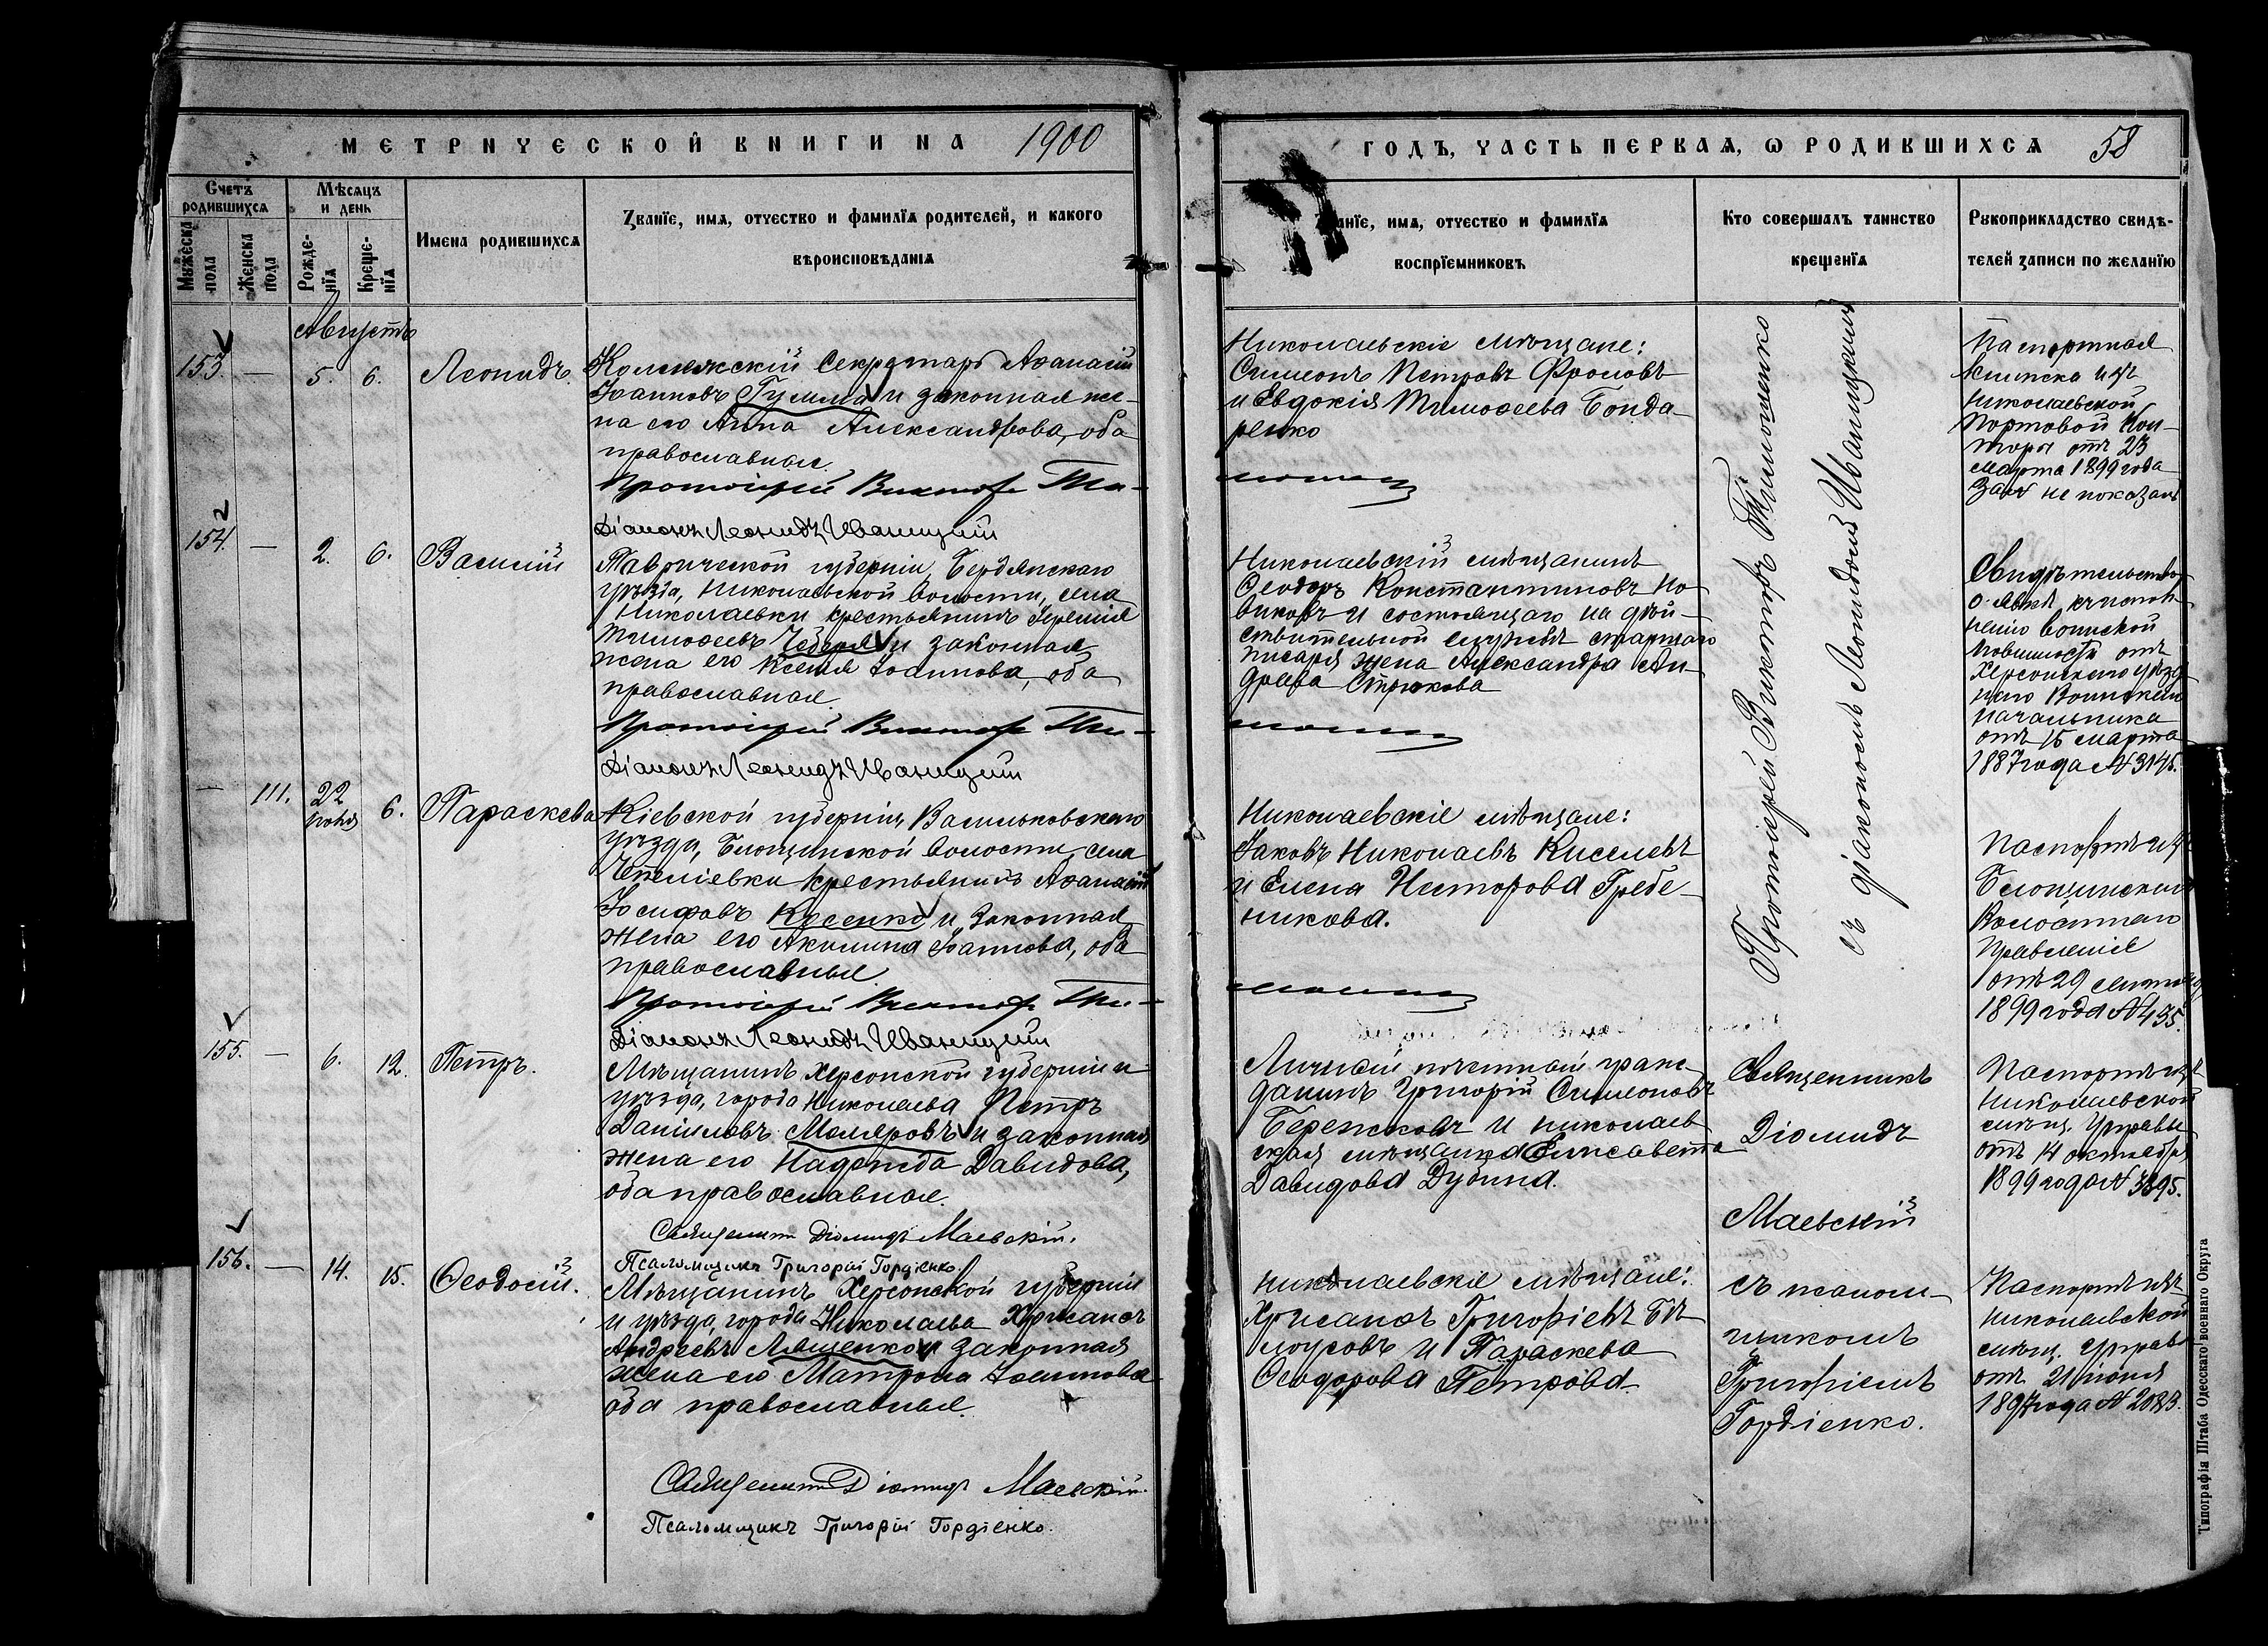 МЕТРИЧЕСКОЙ КНИГИ НА 1900
Счетъ родившихся
Мѣсяцъ и день
Мужеска пола
Женска пола
Рожденія
Крещенія
Имена родившихся
Званіе, имя, отчество и фамилія родителей, и какого
вѣроисповѣданія
Августъ
153. — 5. 6. Леонидъ.
Коллежскій Секретарь Аѳанасій
Іоанновъ и законная же-
на его Анна Александрова, оба
православные.
Протоіерей Викторъ Ти-
Діаконъ Леонидъ Иваницкий
154. — 2. 6. Василій
Таврической губерніи, Бердянскаго
уѣзда, Николаевской волости, села
Николаевки крестьянинъ Іеремія
Тимоѳеевъ и законная
жена его Ксенія Іоаннова, оба
православные.
Протоіерей Викторъ Ти-
Діаконъ Леонидъ Иваницкий
— 111. 22 іюня 6. Параскева
Кіевской губерніи, Васильковскаго
уѣзда, волости, села
крестьянинъ Аѳанасій
Іосифовъ Кусенко и законная
жена его Акилина Іоаннова, оба
православные.
Протоіерей Викторъ Ти-
Діаконъ Леонидъ Иваницкий
155. — 6. 12. Петръ.
Мѣщанинъ Херсонской губерніи и
уѣзда, города Николаева Петръ
Даніиловъ Моляровъ и законная
жена его Надежда Давидова,
оба православные.
Священникъ Діомидъ Маевскій.
Псаломщикъ Григорій Гордіенко.
156. — 14. 15. Ѳеодосій.
Мѣщанинъ Херсонской губерніи
и уѣзда, города Николаева Хрисанѳъ
Андреевъ Лященко и законная
жена его Матрона Іоаннова
оба православные.
Священникъ Діомидъ Маевскій.
Псаломщикъ Григорій Гордіенко.
ГОДЪ, ЧАСТЬ ПЕРВАЯ, Ѡ РОДИВШИХСЯ 58
Званіе, имя, отчество и фамилія
воспріемниковъ
Кто совершалъ таинство
крещенія
Рукоприкладство свидѣ-
телей записи по желанію
Николаевскіе мѣщане:
Симеонъ Петровъ Фроловъ
и Евдокія Тимоѳеева Бонда-
ренко
мошенко
Николаевскій мѣщанинъ
Ѳеодоръ Константиновъ Но-
виковъ и состоящаго на дѣй-
ствительной службѣ старшаго
писаря жена Александра Ан-
дреева Стрюкова
мошенко
Николаевскіе мѣщане:
Іаковъ Николаевъ Киселевъ
и Елена Несторова Гребе-
никова.
мошенко
Личный почетный граж-
данинъ Григорій Симеоновъ
Бережковъ и николаев-
ская мѣщанка Елисавета
Давидова Дубина.
Николаевскіе мѣщане:
Хрисанѳъ Григоріевъ Бѣ-
лоусовъ и Параскева
Ѳеодорова Петрова.
Протоіерей Викторъ Тимошенко
съ діакономъ Леонидомъ Иваницкимъ
Священникъ
Діомидъ
Маевскій
съ псалом-
щикомъ
Григоріемъ
Гордіенко.
Паспортная
книжка изъ
Николаевской
Портовой Кон-
торы отъ 23
марта 1899 года
за № не показанъ
Свидѣтельство
о явкѣ къ испол-
ненію воинской
повинности отъ
Херсонскаго уѣзд-
наго Воинскаго
начальника
отъ 15 марта
1887 года № 3145.
Паспортъ изъ
Волостнаго
Правленія
отъ 29
1899 года № 435.
Паспортъ изъ
Николаевской
мѣщ. Управы
отъ 14 октября
1899 года № 3895.
Паспортъ изъ
Николаевской
мѣщ. Управы
отъ 21 іюня
1897 года № 2083.
Типографія Штаба Одесскаго военнаго Округа